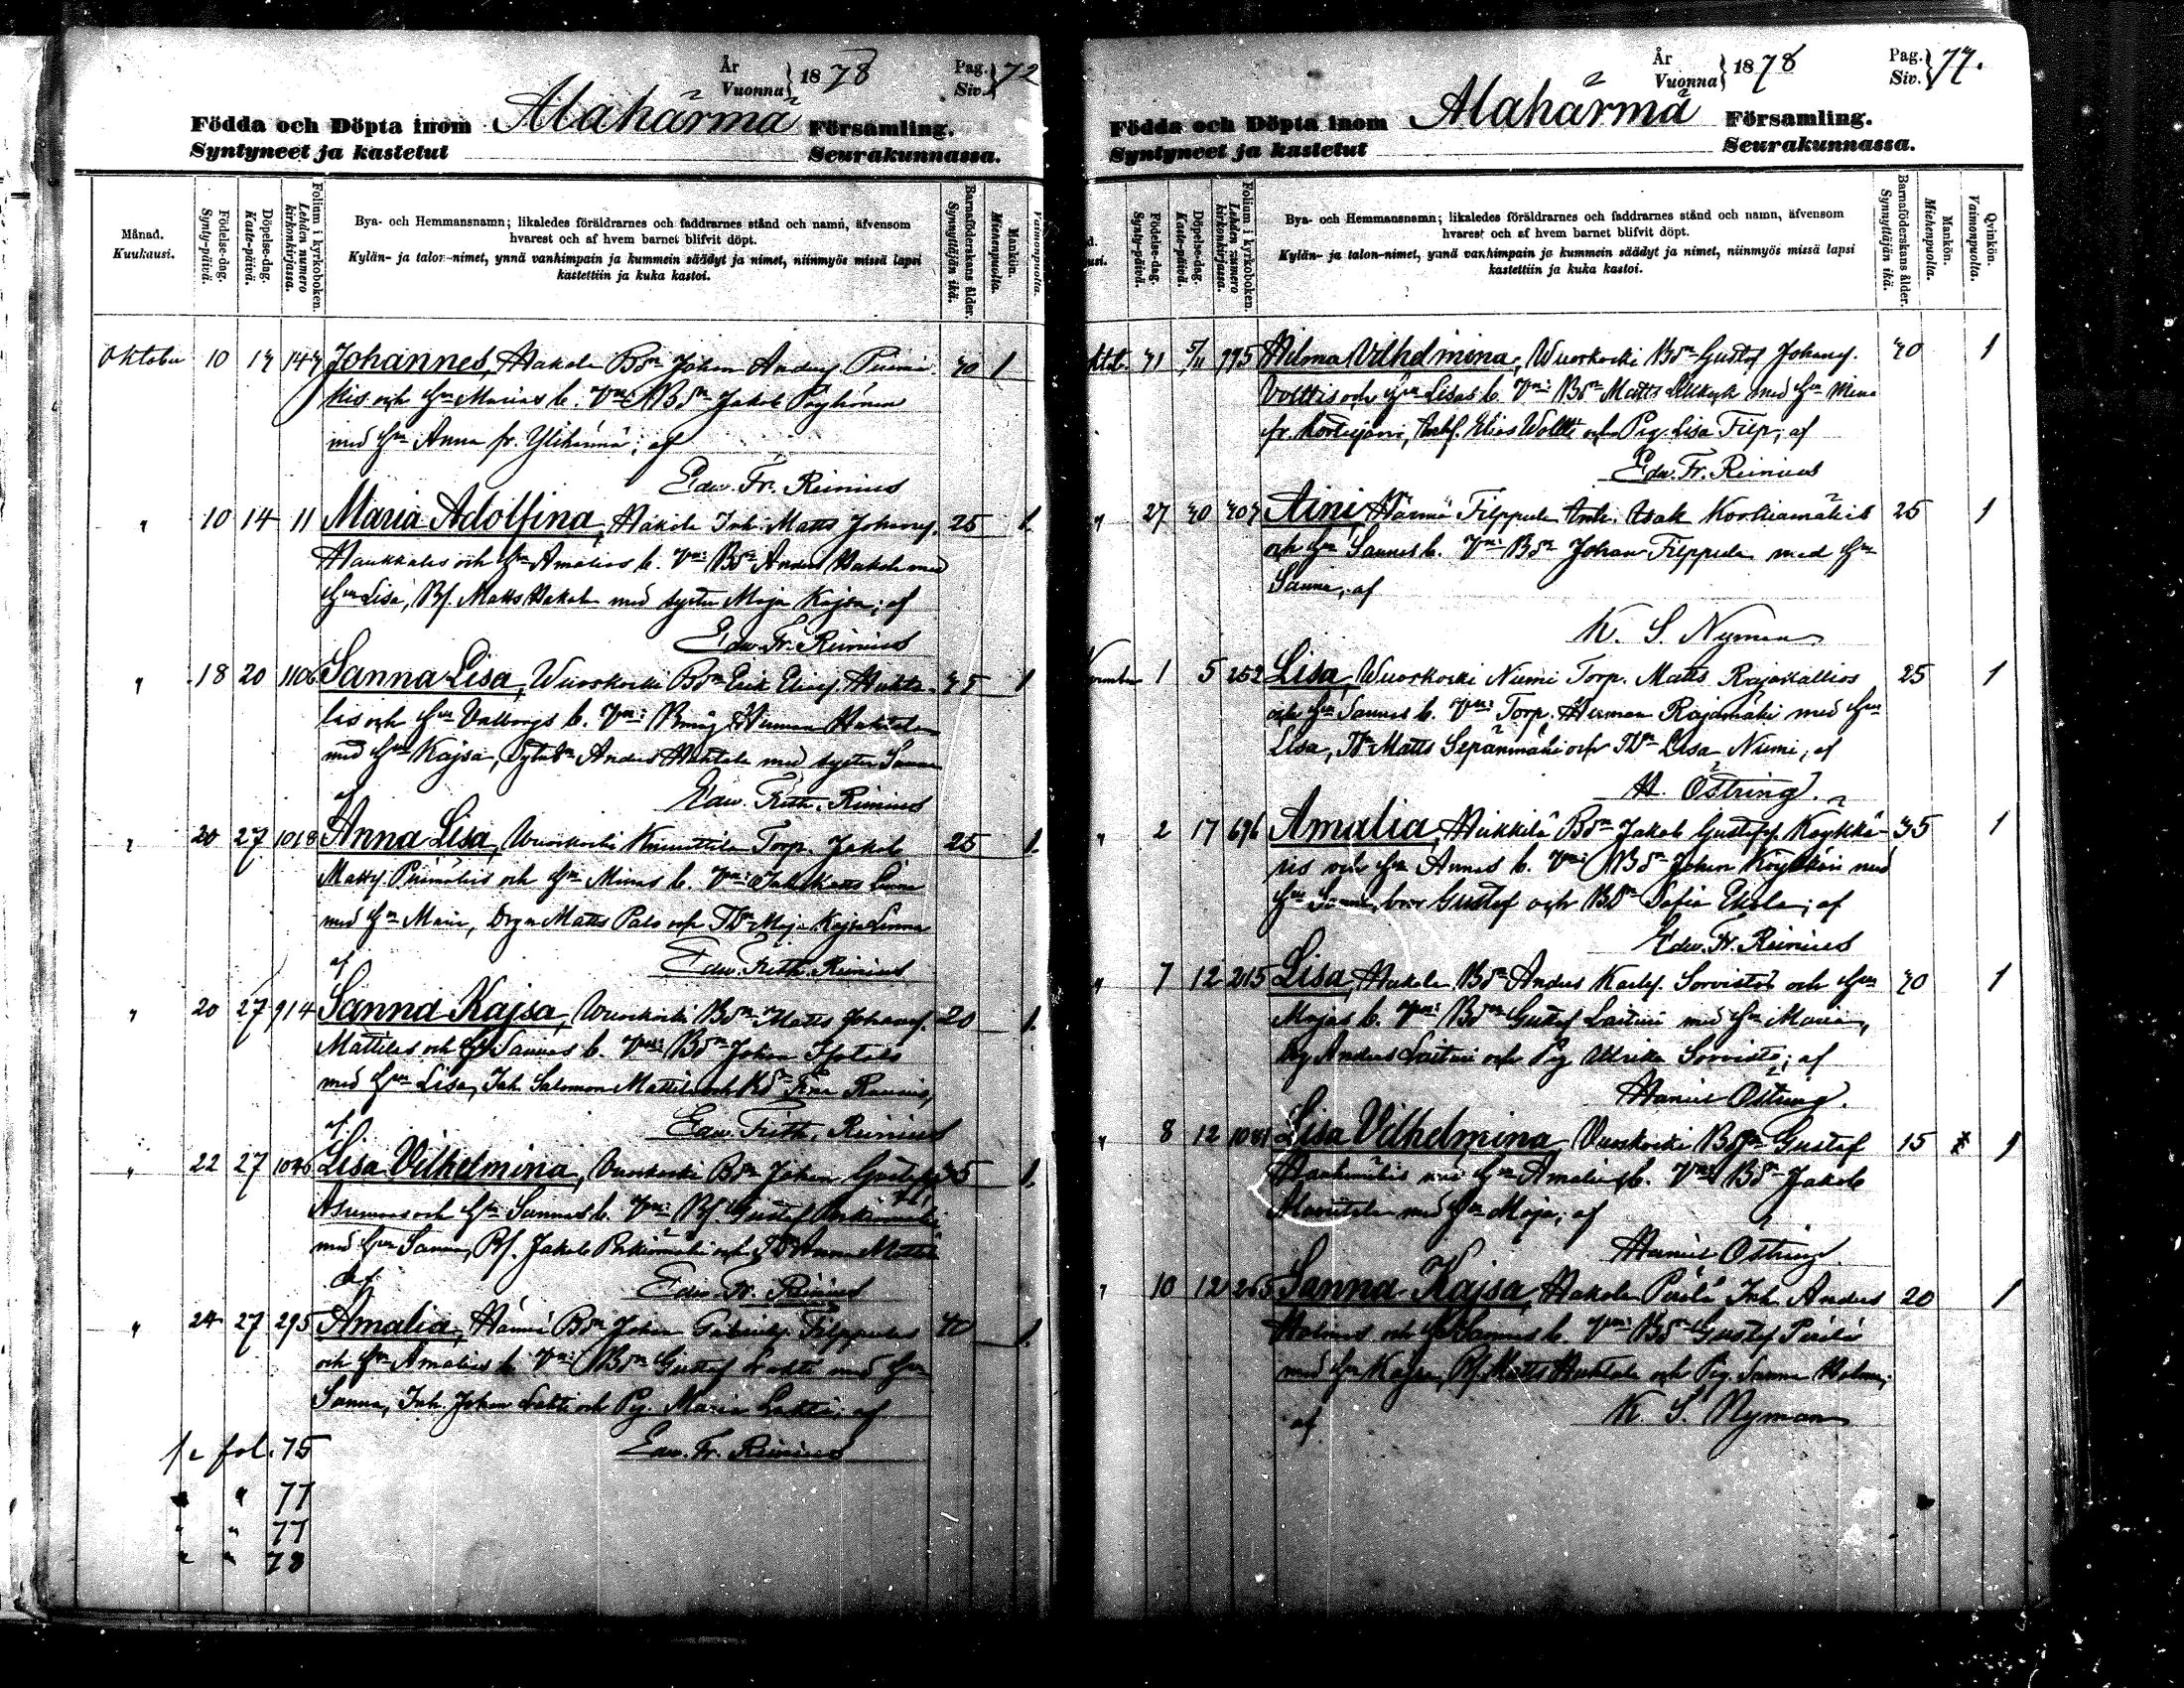 År
Vuonna } 1878
Pag.
Siv. } 72
Födda och Döpta inom Alahärmä Församling.
Syntyneet ja kastetut Seurakunnassa.
Månad.
Kuukausi.
Födelse-dag.
Synty-päivä.
Döpelse-dag.
Kaste-päivä.
Folium i kyrkoboken.
Lehden numero kirkonkirjassa.
Bya- och Hemmansnamn; likaledes föräldrarnes och faddrarnes stånd och namn, äfvensom
hvarest och af hvem barnet blifvit döpt.
Kylän- ja talon-nimet, ynnä vanhimpain ja kummein säädyt ja nimet, niinmyös missä lapsi
kastettiin ja kuka kastoi.
Barnaföderskans ålder.
Synnyttäjän ikä.
Mankön.
Miehenpuolta.
Vaimonpuolta.
Oktober 10 13 143 Johannes, Hakola Bdn Johan Anders 30 1
och Hu Marias b. Vni Bdn Jakob Pöyhönen
med Hu Anna fr. Ylihärmä; af
Edw. Fr. Reinius
" 10 14 11 Maria Adolfina, Hakola Inh. Matts Johansf. 25 1
Haukkalas och Hu Amalias b. Vni Bdn Anders Hakola med
Hu Lisa, Bf. Matts Hakola med syster Maja Kajsa; af
Edw. Fr. Reinius
" 18 20 1106 Sanna Lisa, Wuoskoski Bdn Erik Eliasf. Huhta- 35 1
las och Hu Valborgs b. Vni Herman Huhtala
med Hu Kajsa, Anders Huhtala med syster Sanna
af Edw. Frith. Reinius
" 20 27 1018 Anna Lisa, Wuoskoski Knuuttila Torp. Jakob 25 1
Mattsf. och Hu Minas b. Vni Matts Linna
med Hu Maria, Matts Palo och Maja Kajsa Linna
af Edw. Frith. Reinius
" 20 27 914 Sanna Kajsa, Wuoskoski Bdn Matts Johansf. 20 1
Mattilas och Hu Sannas b. Vni Bdn Johan
med Hu Lisa, Inh. Salomon Mattila och
af Edw. Frith. Reinius
" 22 27 1046 Lisa Vilhelmina, Vuoskoski Bdn Johan Gustafsf. 35 1
Asumaas och Hu Sannas b. Vni Bf. Gustaf
med Hu Sanna, Bf. Jakob och Anna Mattila
af Edw. Fr. Reinius
" 24 27 295 Amalia, Härmä Bdn Johan Gabrielsf. Filppulas 40 1
och Hu Amalias b. Vni Bdn Gustaf Lahti med Hu
Sanna, Inh. Johan Lahti och Pig. Maria Lahti; af
Edw. Fr. Reinius
fol. 75
" " 77
" " 77
" " 78
År
Vuonna } 1878
Pag.
Siv. } 77.
Födda och Döpta inom Alahärmä Församling.
Syntyneet ja kastetut Seurakunnassa.
Födelse-dag.
Synty-päivä.
Döpelse-dag.
Kaste-päivä.
Folium i kyrkoboken.
Lehden numero kirkonkirjassa.
Bya- och Hemmansnamn; likaledes föräldrarnes och faddrarnes stånd och namn, äfvensom
hvarest och af hvem barnet blifvit döpt.
Kylän- ja talon-nimet, ynnä vanhimpain ja kummein säädyt ja nimet, niinmyös missä lapsi
kastettiin ja kuka kastoi.
Barnaföderskans ålder.
Synnyttäjän ikä.
Mankön.
Miehenpuolta.
Qvinkön.
Vaimonpuolta.
31 5/11 995 Hilma Vilhelmina, Wuoskoski Bdn Gustaf Johansf. 30 1
Volttis och Hu Lisas b. Vni: Bdn Matts med Hu Mina
fr. Kortesjärvi, Elias Woltti och Pig. Lisa Filp; af
Edw. Fr. Reinius
" 27 30 303 Aini, Härmä Filppula Isak Koskiamäkis 25 1
och Hu Sannas b. Vni: Bdn Johan Filppula med Hu
Sanna; af
K. S. Nyman
November 1 5 252 Lisa, Wuoskoski Niemi Torp. Matts Rajakallios 25 1
och Hu Sannas b. Vni: Torp. Herman Rajamäki med Hu
Lisa, Matts Sepänmäki och Lisa Niemi; af
H. Östring.
" 2 17 696 Amalia, Heikkilä Bdn Jakob Gustafsf. Köykkä- 35 1
ris och Hu Annas b. Vni: Bdn Johan Köykkäri med
Hu Sanna, bror Gustaf och Sofia Ekola; af
Edw. Fr. Reinius
" 7 12 215 Lisa, Hakola Bdn Anders Karlsf. Sorvistos och Hu 30 1
Majas b. Vni: Bdn Gustaf Laituri med Hu Maria,
Drg Anders Laituri och Pig Ulrika Sorvisto; af
Östring.
" 8 12 1081 Lisa Vilhelmina, Vuoskoski Bdn Gustaf 15 1
Hu Amalias b. Vni Bdn Jakob
med Hu Maja; af
Östring.
" 10 12 265 Sanna Kajsa, Hakola Perälä Inh. Anders 20 1
Holmas och Hu Sannas b. Vni: Bdn Gustaf Perälä
med Hu Kajsa, Bf. Matts Huhtala och Pig. Sanna Holma;
af K. S. Nyman